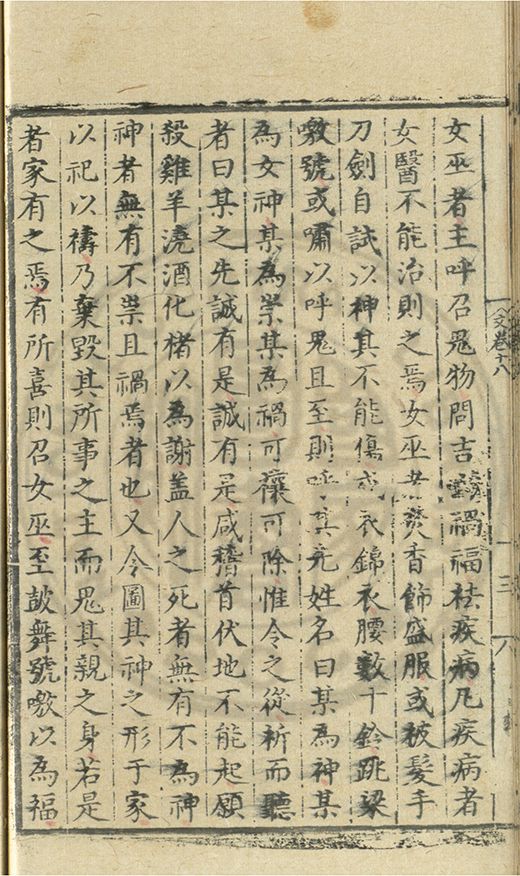 文卷十八
三
女巫者主呼召鬼物問吉禍福祛疾病凡疾病者
女醫不能治則之焉女巫者焚香飾盛服或被髮手
刀劍自試以神其不能傷或衣錦衣腰數十鈴跳梁
噭號或嘯以呼鬼且至則呼其先姓名曰某為神某
為女神某為祟某為禍可禳可除惟令之從祈而聽
者曰某之先誠有是誠有是咸稽首伏地不能起願
殺雞羊澆酒化楮以為謝盖人之死者無有不為神
神者無有不祟且禍焉者也又令圖其神之形于家
以祀以禱乃棄毀其所事之主而鬼其親之身若是
者家有之焉有所喜則召女巫至鼓舞號噭以為福